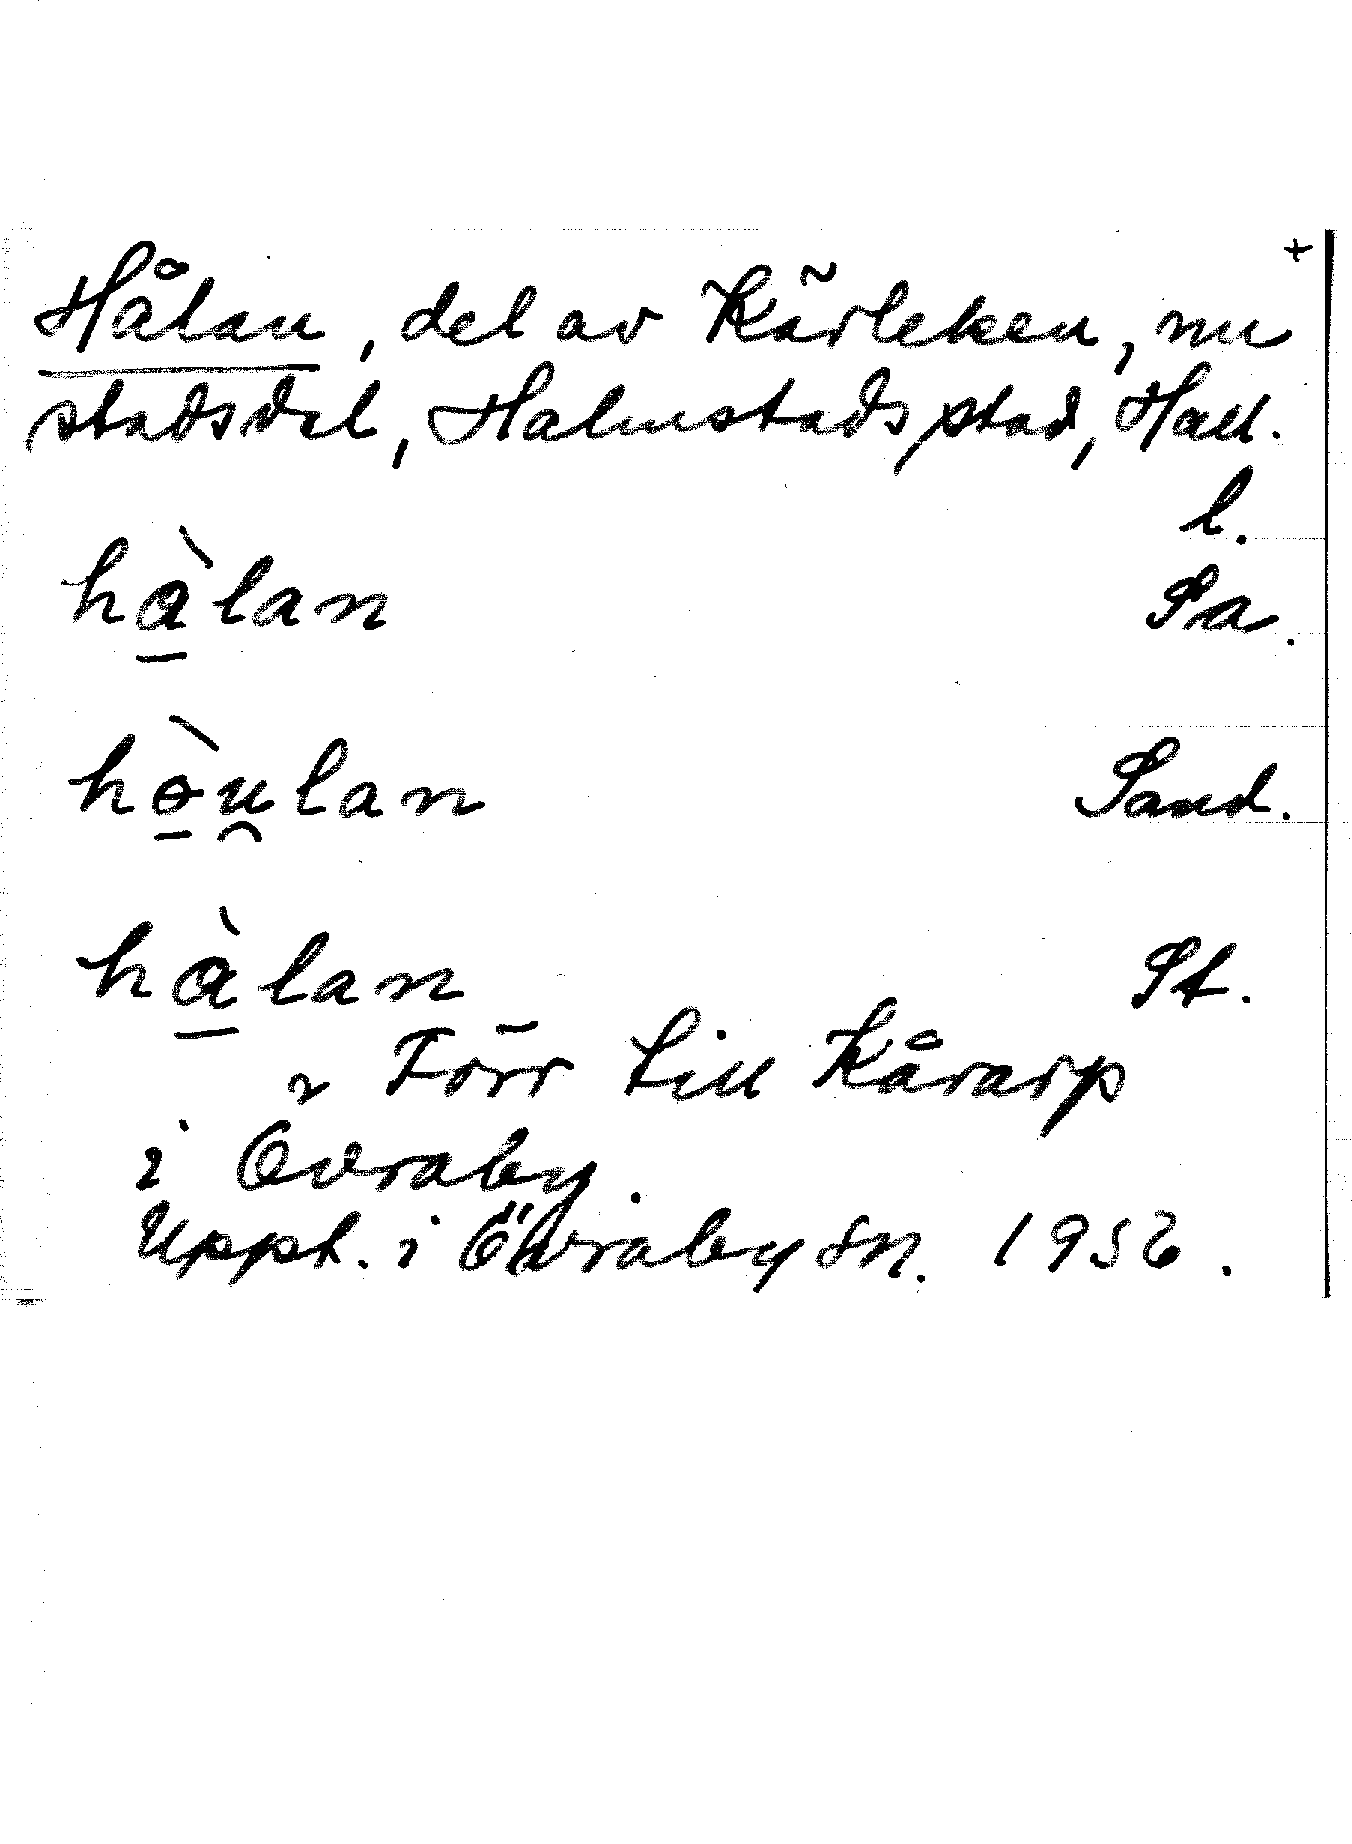 +
Hålan, del av Kärleken, nu
stadsdel, Halmstads stad, Hall.
l.
hàlan Sa.
hòulan Sand.
hàlan St.
~ Förr till Kårarp
i Övraby.
Uppt. i Övraby sn. 1956.